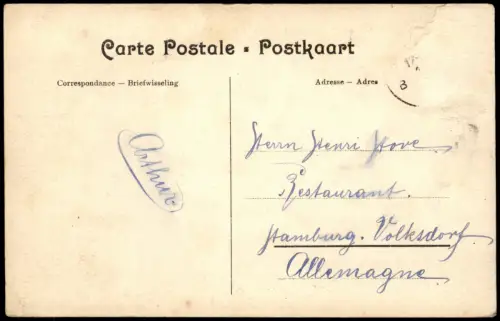 Carte Postale • Postkaart
Correspondance – Briefwisseling
Adresse – Adres
Arthur
Herrn Henri Hove
Restaurant.
Hamburg. Volksdorf
Allemagne